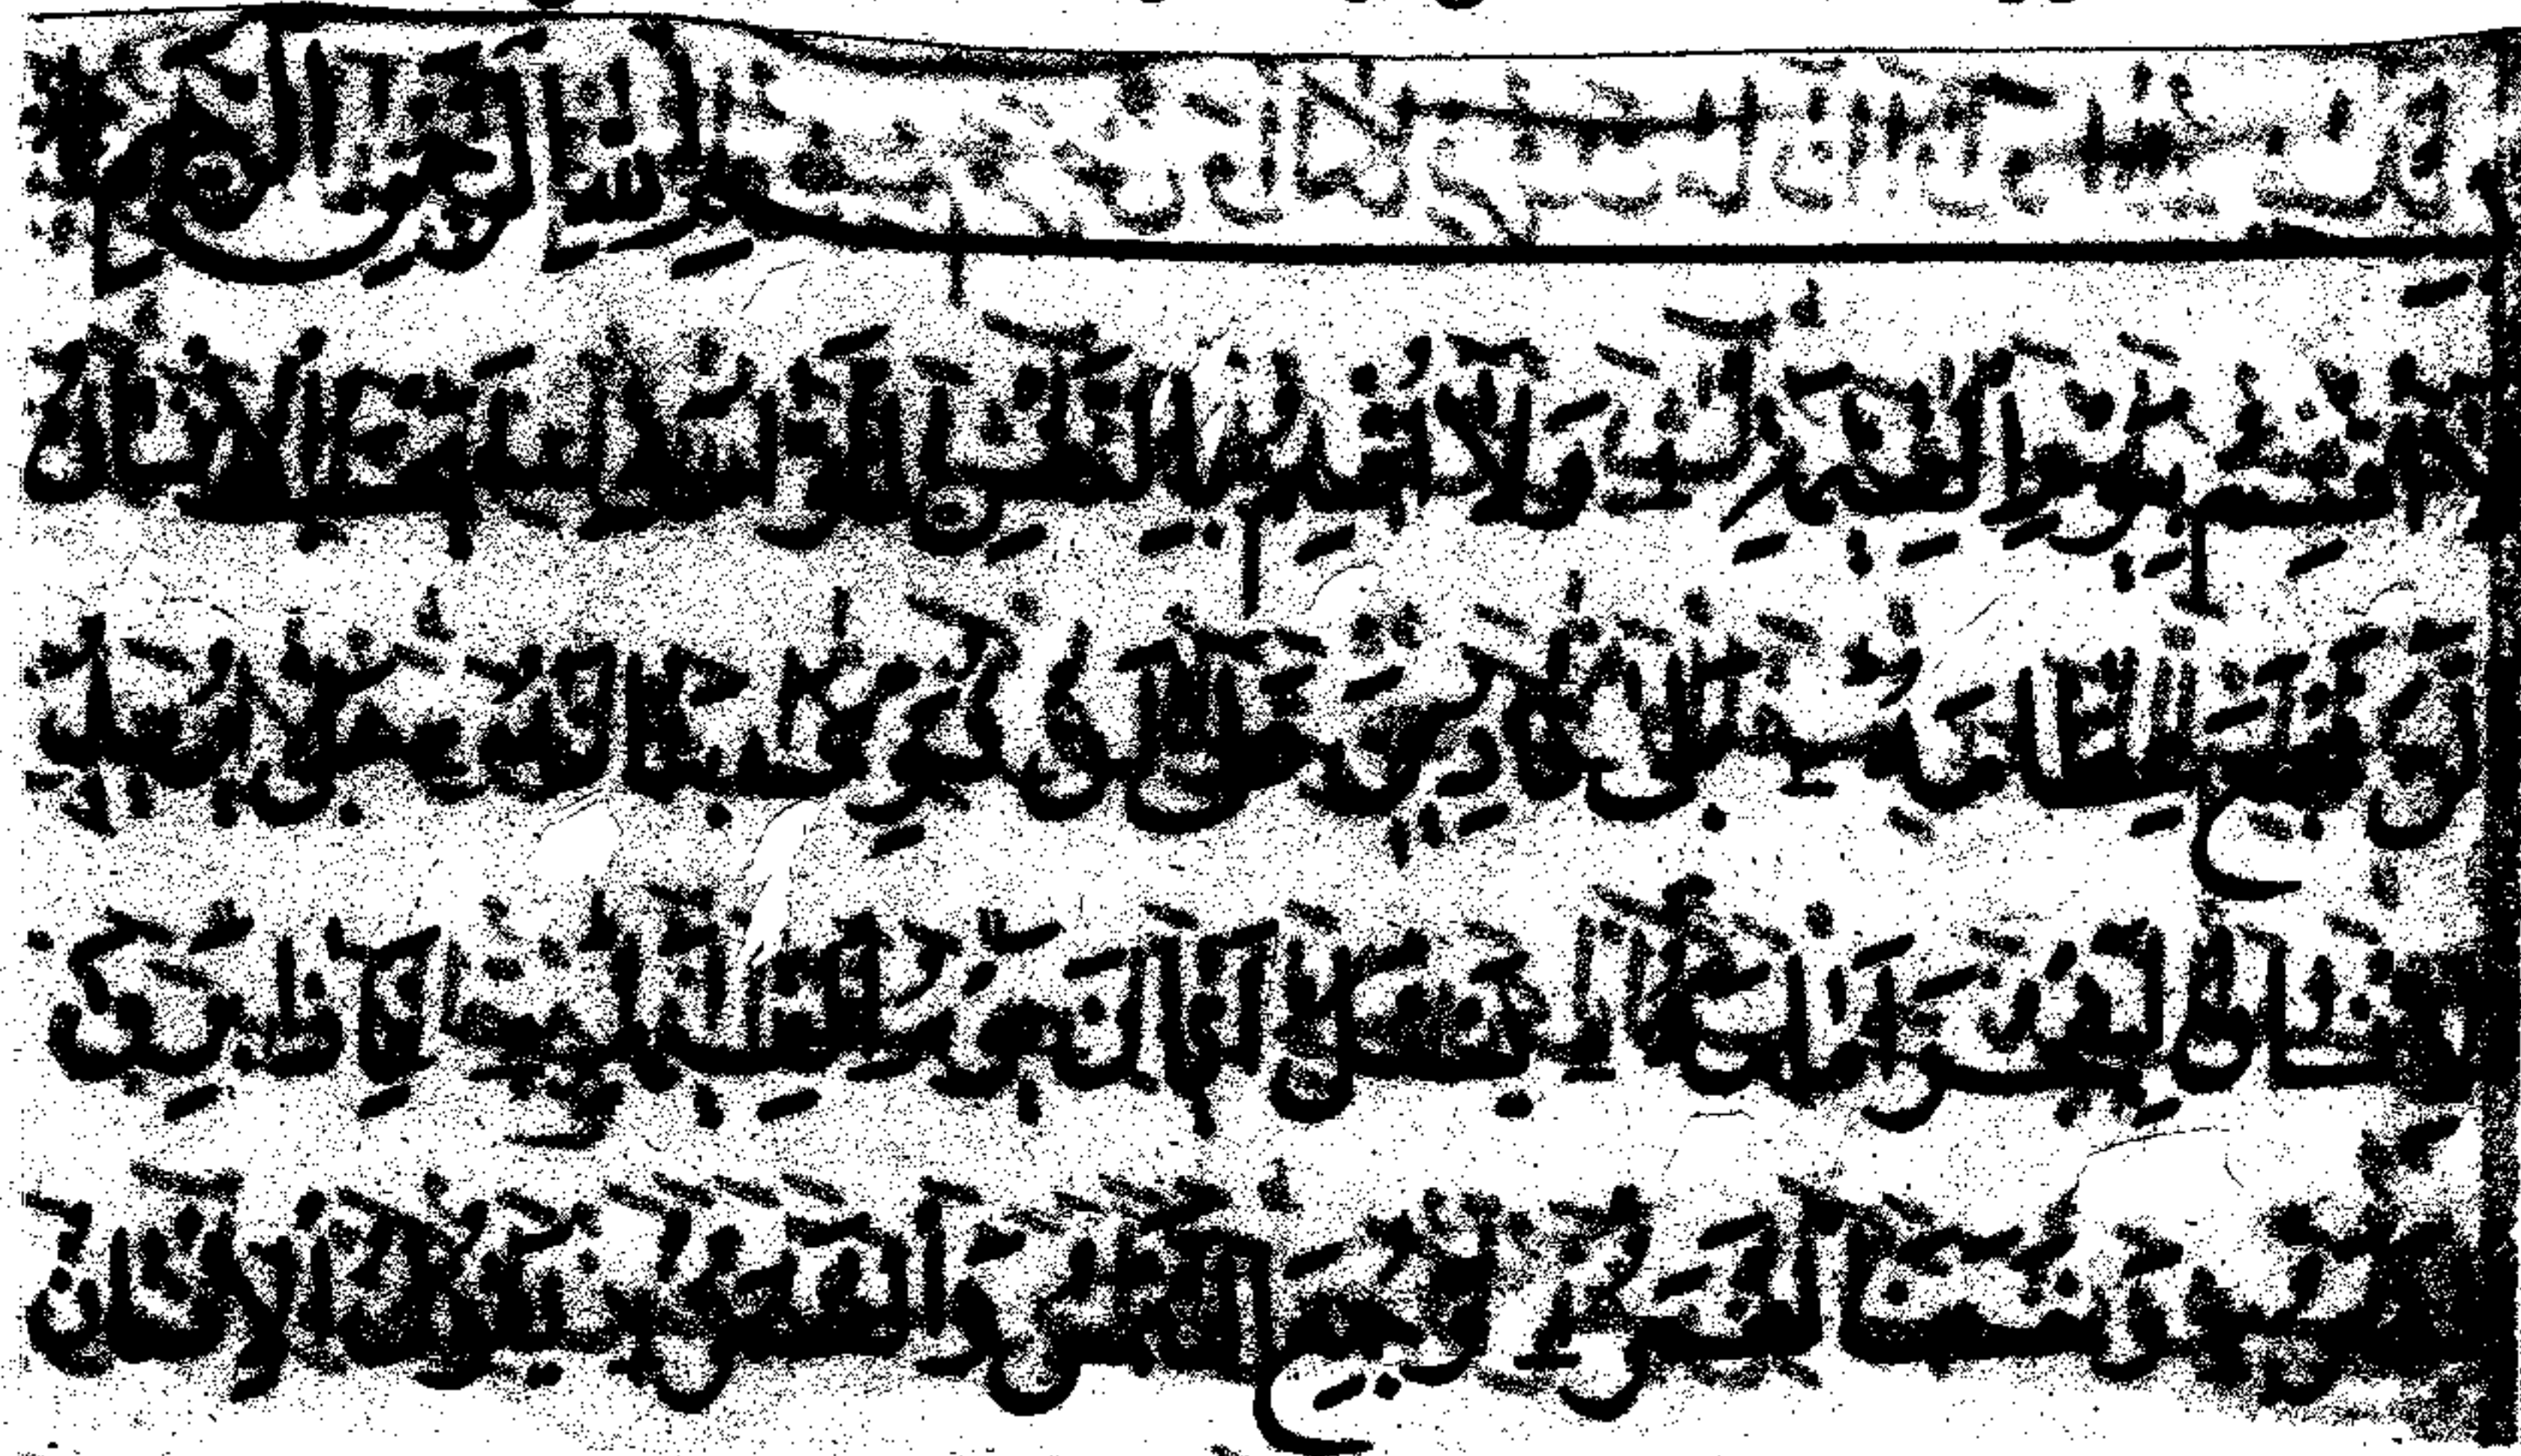 بسم الله الرحمن الرحيم
لَا أُقْسِمُ بِيَوْمِ الْقِيَمَةِ وَلَا أُقْسِمُ بِالنَّفْسِ اللَّوَّامَةِ أَيَحْسَبُ الْإِنْسَانُ
أَلَّنْ نَجْمَعَ عِظَامَهُ بَلَى قَادِرِينَ عَلَى أَنْ نُسَوِّيَ بَنَانَهُ بَلْ يُرِيدُ
الْإِنْسَانُ لِيَفْجُرَ أَمَامَهُ يَسْأَلُ أَيَّانَ يَوْمُ الْقِيَمَةِ فَإِذَا بَرِقَ
الْبَصَرُ وَخَسَفَ الْقَمَرُ وَجُمِعَ الشَّمْسُ وَالْقَمَرُ يَقُولُ الْإِنْسَانُ